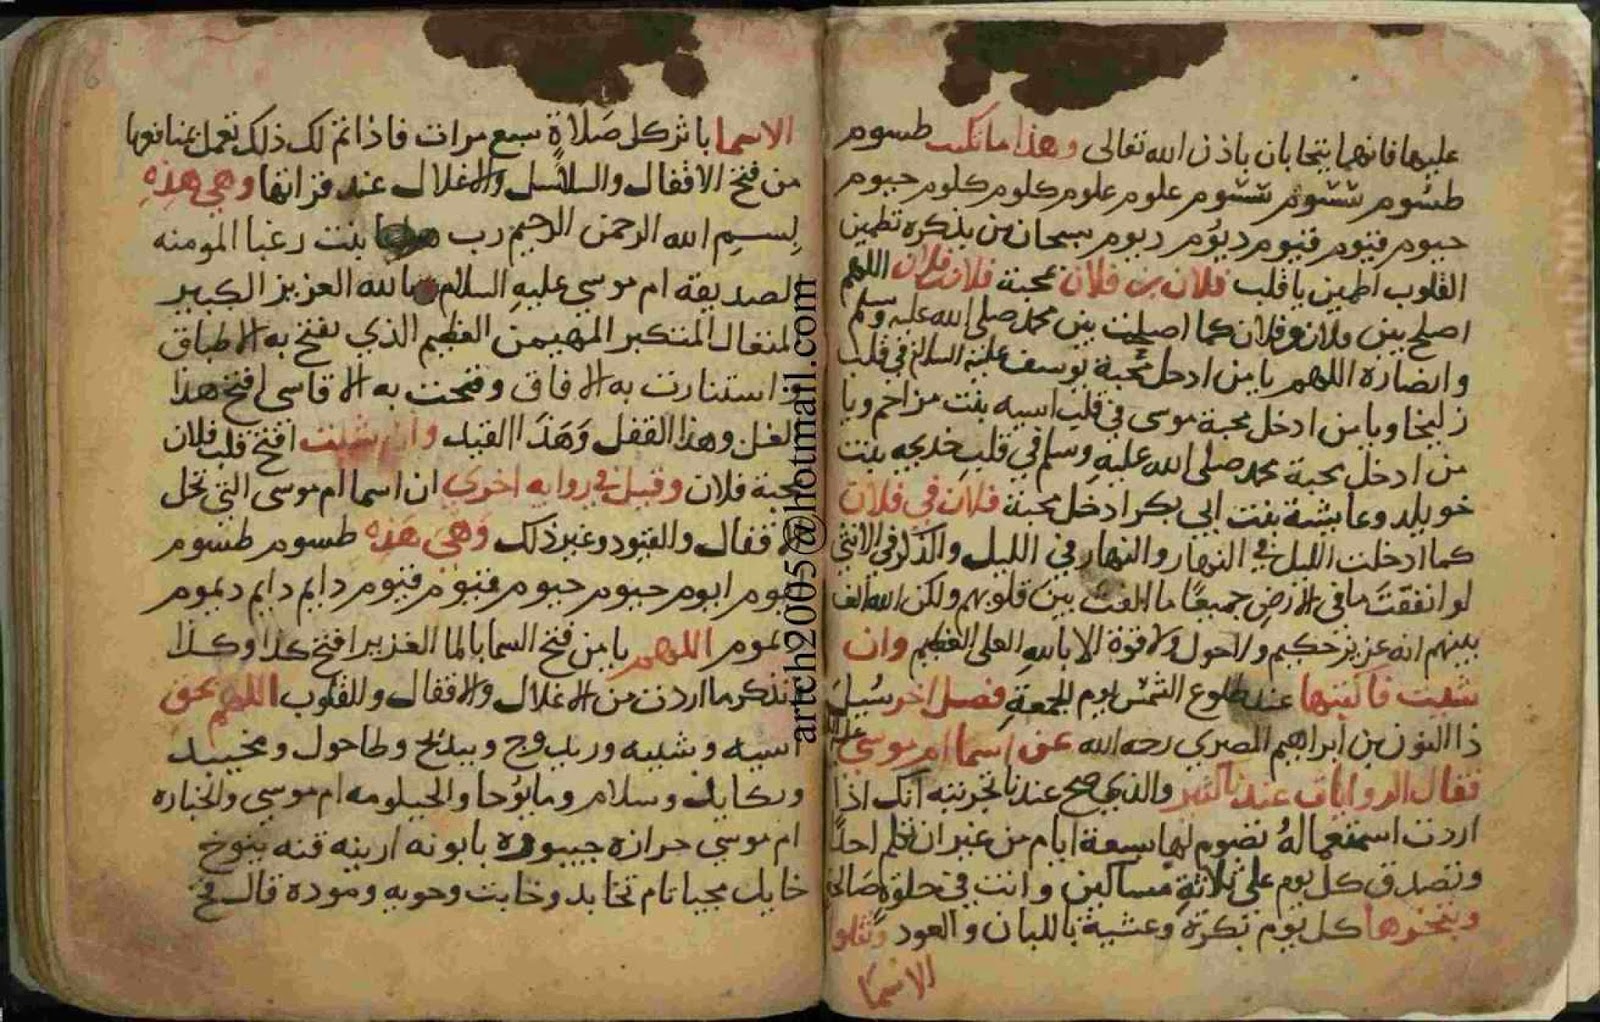 عليها فانهما يتحابان باذن الله تعالى وهذا ما تكتب طسوم
طسوم شسوم شسوم علوم علوم كلوم كلوم حيوم
حيوم قيوم قيوم ديوم ديوم سبحان من بذكره تطمين
القلوب اطمين يا قلب فلان بن فلان بمحبة فلان فلان اللهم
اصلح بين فلان وفلان كما اصلحت بين محمد صلى الله عليه وسلم
وانصاره اللهم يا من ادخل محبة يوسف عليه السلام في قلب
زليخا ويا من ادخل محبة موسى في قلب اسيه بنت مزاحم ويا
من ادخل محبة محمد صلى الله عليه وسلم في قلب خديجه بنت
خويلد وعايشة بنت ابي بكر ادخل محبة فلان في فلان
كما ادخلت الليل في النهار والنهار في الليل والذكر في الانثى
لو انفقت ما في الارض جميعا ما الفت بين قلوبهم ولكن الله الف
بينهم انه عزيز حكيم ولا حول ولا قوة الا بالله العلي العظيم وان
شيت فاكتبها عند طلوع الشمس يوم الجمعة فصل اخر سيل
ذا النون بن ابراهيم المصري رحمه الله عن اسما ام موسى عليه
فقال الروايات عندنا كثير والذي صح عندنا تجربته انك اذا
اردت استعماله تصوم لها سبعة ايام من غير ان تكلم احدا
وتصدق كل يوم على ثلاثة مساكين وانت في خلوة صالحة
وتبخرها كل يوم بكرة وعشية باللبان والعود وتتلوا
الاسما
الاسما باثر كل صلاة سبع مرات فاذا تم لك ذلك تعمل بمنافعها
من فتح الاقفال والسلاسل والاغلال عند قراتها وهي هذه
بسم الله الرحمن الرحيم رب بنت رغبا المومنه
الصديقة ام موسي عليه السلام بالله العزيز الكبير
المتعال المتكبر المهيمن العظيم الذي تفتح به الاطباق
واستنارت به الافاق وفتحت به الاقاسي افتح هذا
الغل وهذا القفل وهذا القيد وان شيت افتح قلب فلان
بمحبة فلان وقيل في رواية اخري ان اسما ام موسى التي تحل
الاقفال والقيود وغير ذلك وهي هذه طسوم طسوم
ايوم ايوم حيوم حيوم قيوم قيوم دايم دايم ديموم
ديموم اللهم يا من فتح السما بالما الغزير افتح كذا وكذا
وتذكر ما اردت من الاغلال والاقفال والقلوب اللهم بحق
اسيه وشبيه ورب وج وبيدخ وطاحول
وسلام ام موسي
ام موسي حرازه جيبوره بابونه اربيه قنه
خايل ومودة قال فتح
artch2005@hotmail.com